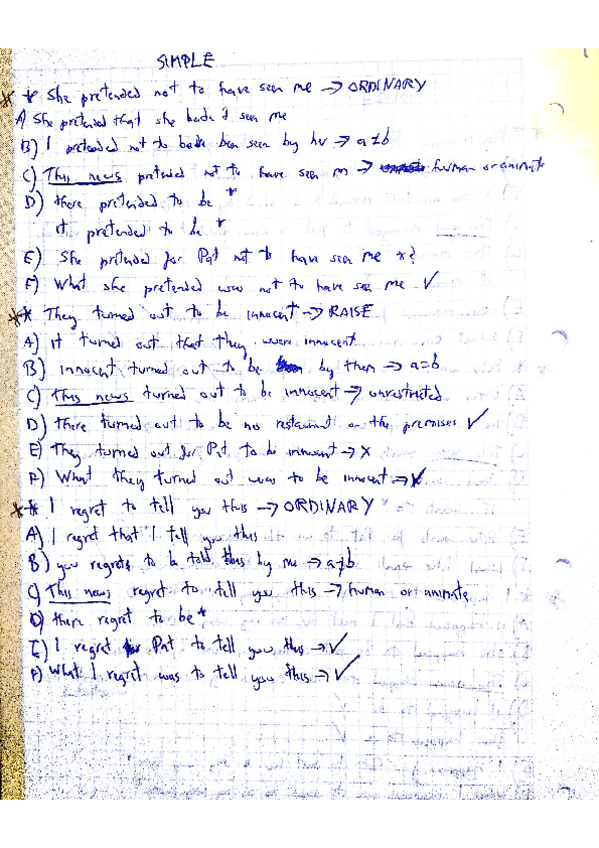 SIMPLE
* She pretended not to have seen me → ORDINARY
A) She pretended that she hadn't seen me
B) I pretended not to have been seen by her → a≠b
C) This news pretended not to have seen me → human or animate
D) there pretended to be *
it pretended to be *
E) She pretended for Pat not to have seen me x?
F) What she pretended was not to have seen me ✓
* They turned out to be innocent → RAISE
A) it turned out that they were innocent
B) innocent turned out to be by them → a=b
C) This news turned out to be innocent → unrestricted
D) there turned out to be no restaurant on the premises ✓
E) They turned out for Pat to be innocent → X
F) What they turned out was to be innocent → X
* I regret to tell you this → ORDINARY
A) I regret that I tell you this
B) you regrets to be told this by me → a≠b
C) This news regret to tell you this → human or animate
D) there regret to be *
E) I regret for Pat to tell you this → ✓
F) What I regret was to tell you this → ✓